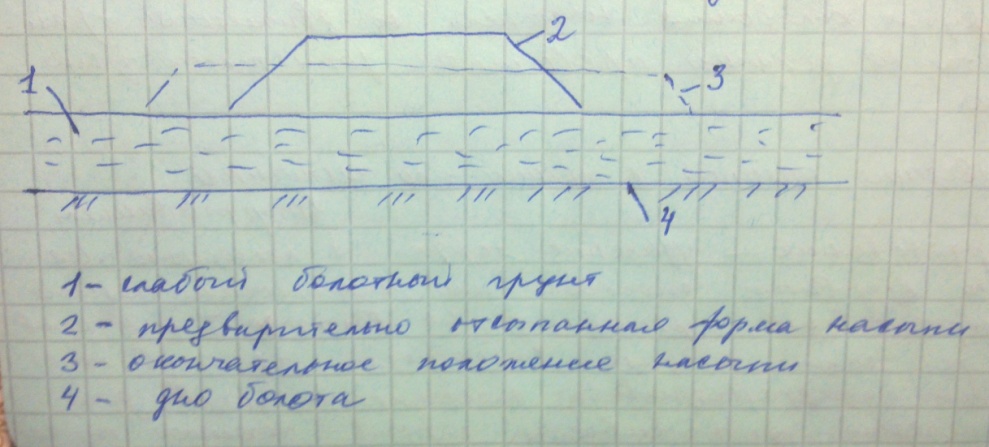 2
1
3
4
1 - слабый болотный грунт
2 - предварительно отсыпанная форма насыпи
3 - окончательное положение насыпи
4 - дно болота